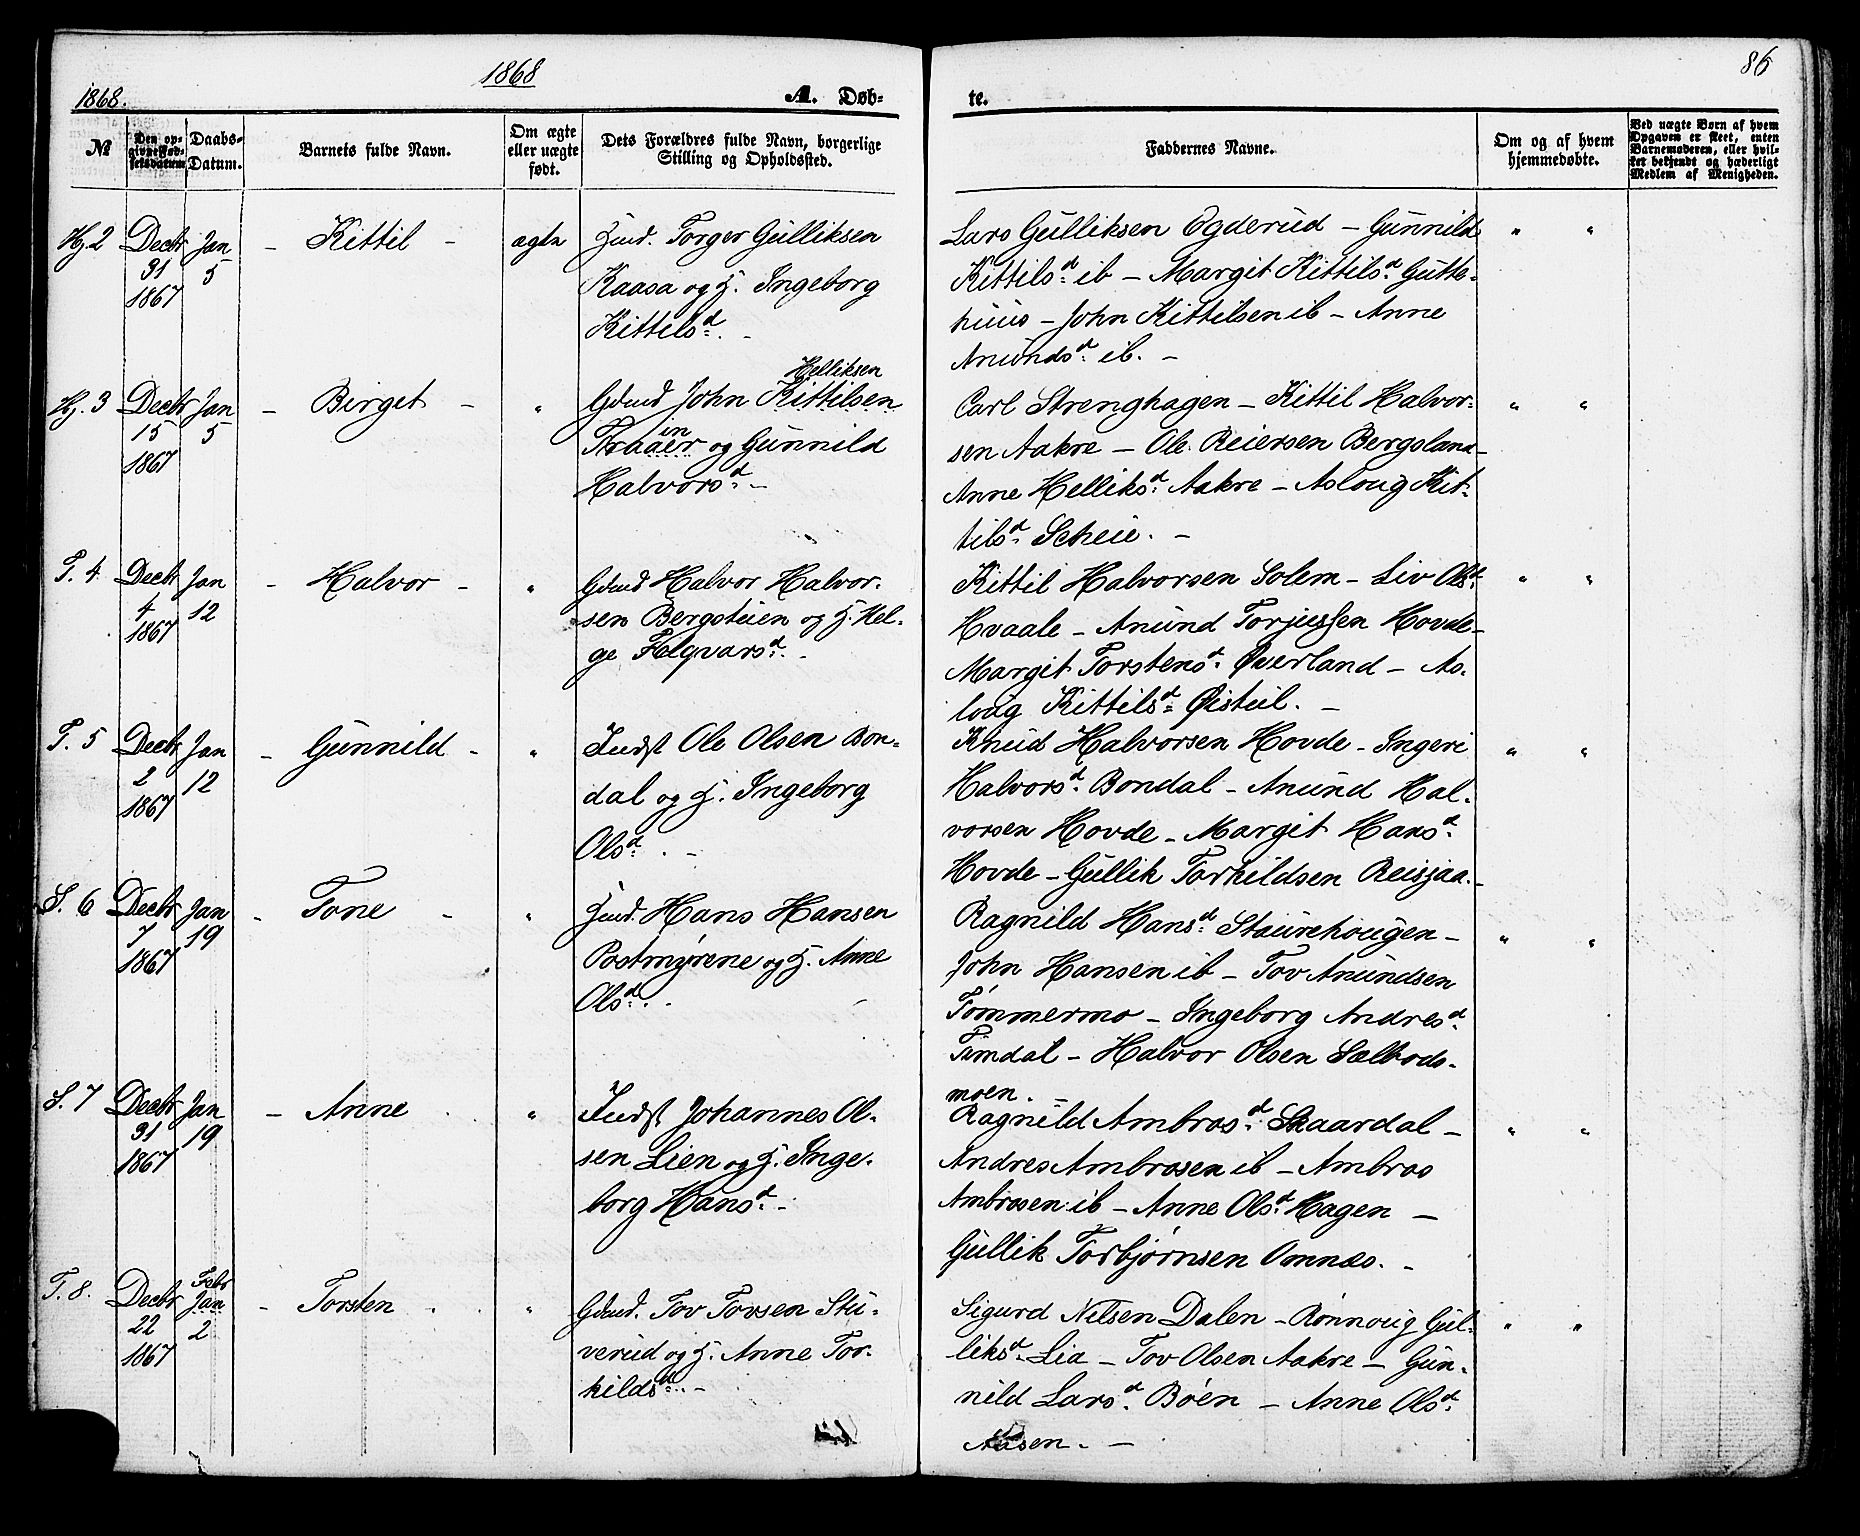 1868
86
1868.
A. Døb-
te.
№
Den op-
givne Fød-
selsdatum.
Daabs-
Datum.
Barnets fulde Navn.
Om ægte
eller uægte
født.
Dets Forældres fulde Navn, borgerlige
Stilling og Opholdssted.
Faddernes Navne.
Om og af hvem
hjemmedøbte.
Ved uægte Børn af hvem
Opgaven er skeet, enten
Barnemoderen, eller hvil-
ket bekjendt og hæderligt
Medlem af Menigheden.
Hj. 2 Decbr Jan - Kittil - ægte Hmd. Torger Gulliksen
31 5
1867
Kaasa og H. Ingeborg
Kittilsd. -
Lars Gulliksen Ogderud - Gunnild " "
Kittilsd. ib - Margit Kittilsd. Gutte-
huus - John Kittilsen ib - Anne
Anundsd. ib. -
Hj. 3 Decbr Jan - Birget - " Gdmd John Kittilsen
Helliksen
15 5
1867
Traaen og Gunnild
Halvorsd. -
Carl Strenghagen - Kittil Halvor- " "
sen Aakre - Ole Reiersen Bergsland -
Anne Helliksd. Aakre - Asloug Kit-
tilsd. Scheie. -
T. 4 Decbr Jan - Halvor - " Gdmd Halvor Halvor-
4 12
1867
sen Bergstuen og H. Hel-
ge Folqvarsd. -
Kittil Halvorsen Solem - Liv Olsd. " "
Hvaale - Anund Torjussen Hovde -
Margit Torstensd. Øverland - As-
loug Kittilsd. Øistul. -
T. 5 Decbr Jan - Gunnild - " Indst Ole Olsen Bon-
2 12
1867
dal og H. Ingeborg
Olsd. -
Knud Halvorsen Hovde - Ingeri " "
Halvorsd. Bondal - Anund Hal-
vorsen Hovde - Margit Hansd.
Hovde - Gullik Torkildsen Reisjaa. -
S. 6 Decbr Jan - Tone - " Hmd. Hans Hansen
7 19
1867
Postmyrene og H. Anne
Olsd. -
Ragnild Hansd. Staurehougen - " "
John Hansen ib - Tov Anundsen
Tømmermo - Ingeborg Andresd.
Timdal - Halvor Olsen Sælbods-
moen. -
S. 7 Decbr Jan - Anne " Indst Johannes Ol-
31 19
1867
sen Lien og H. Inge-
borg Hansd. -
Ragnild Ambrosd. Skaardal - " "
Andres Ambrosen ib - Ambros
Ambrosen ib - Anne Olsd. Hagen -
Gullik Torbjørnsen Omnæs. -
T. 8. Decbr Jan - Torsten " Gdmd. Tov Tovsen Stu-
Febr
22 2
1867
verud og H. Anne Tor-
kildsd. -
Sigurd Nilsen Dalen - Rønnoug Gul- " "
liksd. Lia - Tov Olsen Aakre - Gun-
nild Larsd. Bøen - Anne Olsd.
Aasen. -